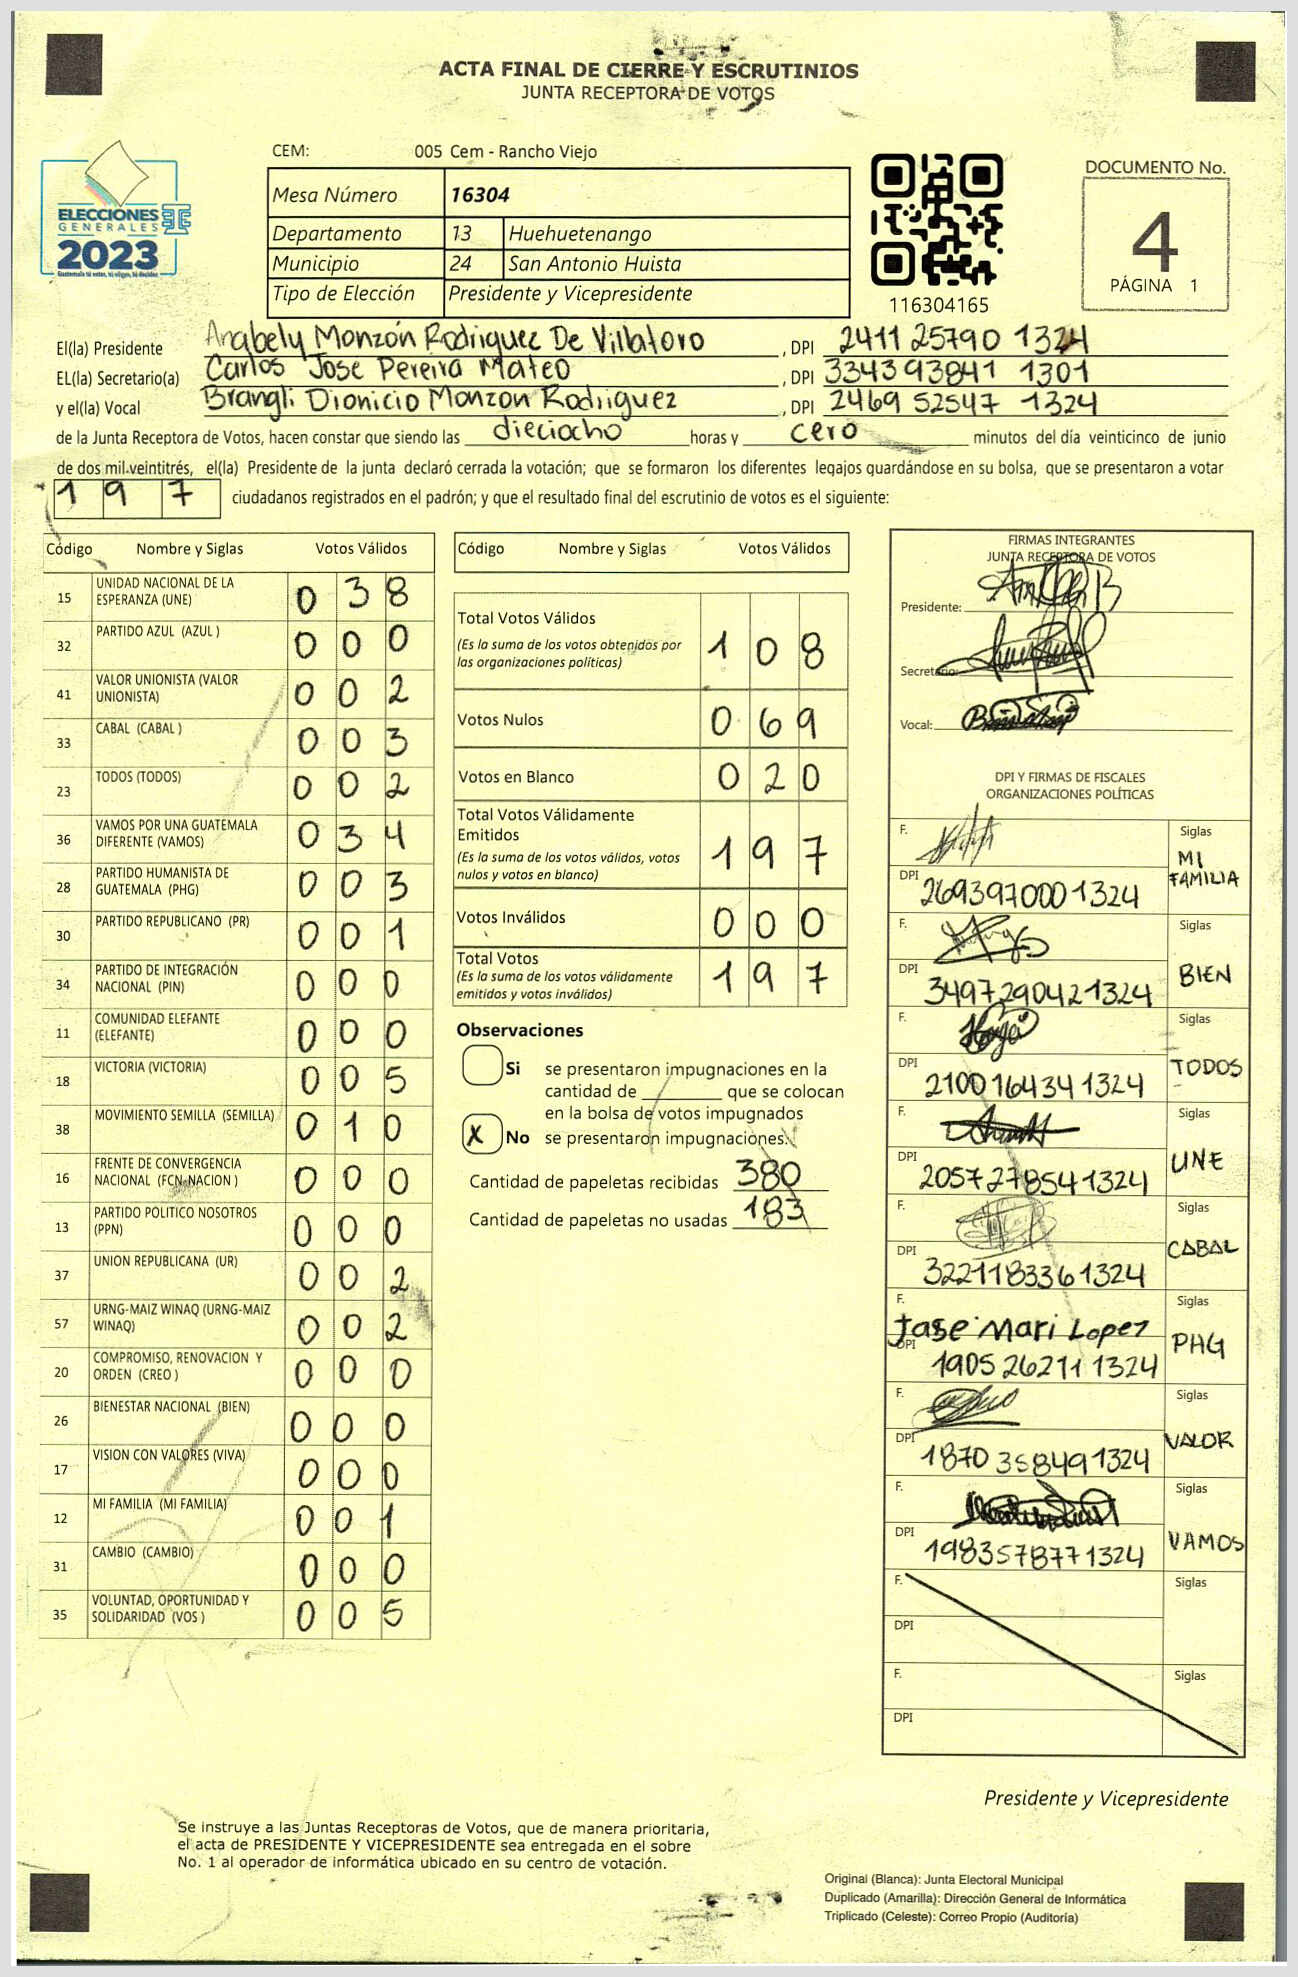 ACTA FINAL DE CIERRE Y ESCRUTINIOS
JUNTA RECEPTORA DE VOTOS
ELECCIONES
GENERALES
2023
Guatemala tú votas, tú eliges, tú decides
CEM: 005 Cem - Rancho Viejo
Mesa Número 16304
Departamento 13 Huehuetenango
Municipio 24 San Antonio Huista
Tipo de Elección Presidente y Vicepresidente
116304165
DOCUMENTO No.
4
PÁGINA 1
El(la) Presidente Anabely Monzón Rodriguez De Villatoro , DPI 2411 25790 1324
EL(la) Secretario(a) Carlos Jose Pereira Mateo , DPI 334393841 1301
y el(la) Vocal Brangli Dionicio Monzon Rodriiguez , DPI 2469 52547 1324
de la Junta Receptora de Votos, hacen constar que siendo las dieciocho horas y cero minutos del día veinticinco de junio
de dos mil veintitrés, el(la) Presidente de la junta declaró cerrada la votación; que se formaron los diferentes legajos guardándose en su bolsa, que se presentaron a votar
197 ciudadanos registrados en el padrón; y que el resultado final del escrutinio de votos es el siguiente:
Código Nombre y Siglas Votos Válidos
15 UNIDAD NACIONAL DE LA ESPERANZA (UNE) 0 3 8
32 PARTIDO AZUL (AZUL ) 0 0 0
41 VALOR UNIONISTA (VALOR UNIONISTA) 0 0 2
33 CABAL (CABAL ) 0 0 3
23 TODOS (TODOS) 0 0 2
36 VAMOS POR UNA GUATEMALA DIFERENTE (VAMOS) 0 3 4
28 PARTIDO HUMANISTA DE GUATEMALA (PHG) 0 0 3
30 PARTIDO REPUBLICANO (PR) 0 0 1
34 PARTIDO DE INTEGRACIÓN NACIONAL (PIN) 0 0 0
11 COMUNIDAD ELEFANTE (ELEFANTE) 0 0 0
18 VICTORIA (VICTORIA) 0 0 5
38 MOVIMIENTO SEMILLA (SEMILLA) 0 1 0
16 FRENTE DE CONVERGENCIA NACIONAL (FCN-NACION ) 0 0 0
13 PARTIDO POLITICO NOSOTROS (PPN) 0 0 0
37 UNION REPUBLICANA (UR) 0 0 2
57 URNG-MAIZ WINAQ (URNG-MAIZ WINAQ) 0 0 2
20 COMPROMISO, RENOVACION Y ORDEN (CREO ) 0 0 0
26 BIENESTAR NACIONAL (BIEN) 0 0 0
17 VISION CON VALORES (VIVA) 0 0 0
12 MI FAMILIA (MI FAMILIA) 0 0 1
31 CAMBIO (CAMBIO) 0 0 0
35 VOLUNTAD, OPORTUNIDAD Y SOLIDARIDAD (VOS ) 0 0 5
Código Nombre y Siglas Votos Válidos
Total Votos Válidos
(Es la suma de los votos obtenidos por
las organizaciones políticas) 1 0 8
Votos Nulos 0 6 9
Votos en Blanco 0 2 0
Total Votos Válidamente
Emitidos
(Es la suma de los votos válidos, votos
nulos y votos en blanco) 1 9 7
Votos Inválidos 0 0 0
Total Votos
(Es la suma de los votos válidamente
emitidos y votos inválidos) 1 9 7
Observaciones
Si se presentaron impugnaciones en la
cantidad de ________ que se colocan
en la bolsa de votos impugnados
X No se presentaron impugnaciones.
Cantidad de papeletas recibidas 380
Cantidad de papeletas no usadas 183
FIRMAS INTEGRANTES
JUNTA RECEPTORA DE VOTOS
Presidente:
Secretario:
Vocal:
DPI Y FIRMAS DE FISCALES
ORGANIZACIONES POLÍTICAS
F. Siglas
MI FAMILIA
DPI 2693970001324
F. Siglas
BIEN
DPI 3497290421324
F. Siglas
TODOS
DPI 2100164341324
F. Siglas
UNE
DPI 2057278541324
F. Siglas
CABAL
DPI 3221183361324
F. Jase Mari Lopez Siglas
PHG
DPI 1905262711324
F. Siglas
VALOR
DPI 1870358491324
F. Siglas
VAMOS
DPI 1983578771324
F. Siglas
DPI
F. Siglas
DPI
Presidente y Vicepresidente
Se instruye a las Juntas Receptoras de Votos, que de manera prioritaria,
el acta de PRESIDENTE Y VICEPRESIDENTE sea entregada en el sobre
No. 1 al operador de informática ubicado en su centro de votación.
Original (Blanca): Junta Electoral Municipal
Duplicado (Amarilla): Dirección General de Informática
Triplicado (Celeste): Correo Propio (Auditoría)